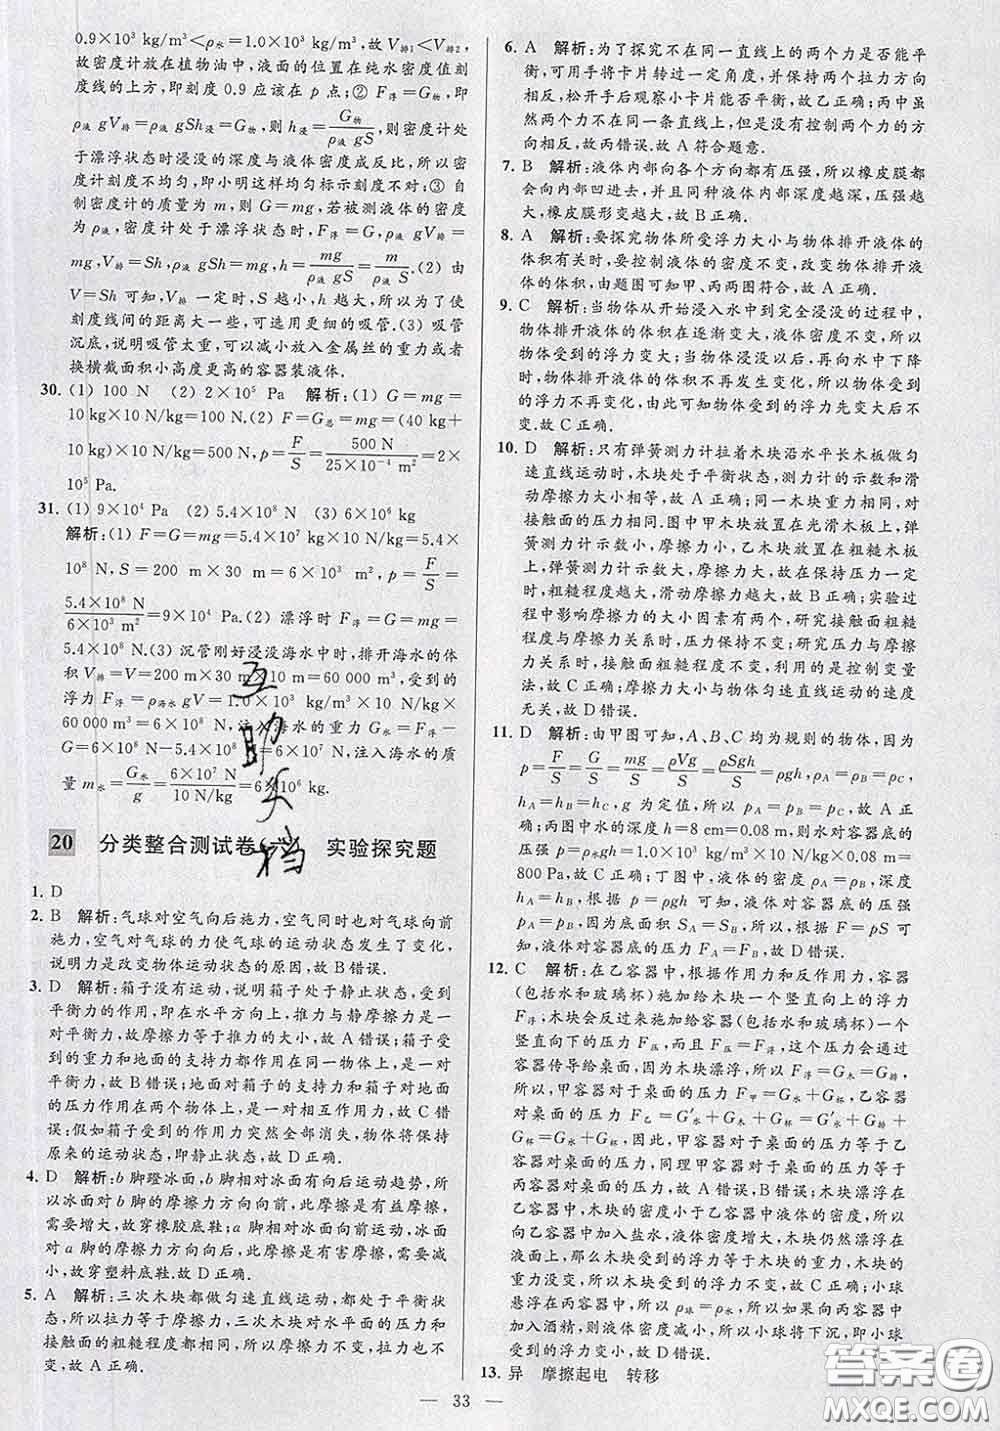 0.9×10³ kg/m³<ρ水=1.0×10³ kg/m³，故 V排1<V排2，
故密度计放在植物油中，液面的位置在纯水密度值刻
度线的上方，即刻度 0.9 应该在 p 点；② F浮=G物，即
ρ液 gV排=ρ液 gSh浸=G物，则 h浸=G物/(ρ液 gS)，则密度计处
于漂浮状态时浸没的深度与液体密度成反比，所以密
度计刻度不均匀，即小明这样均匀标示刻度不对；③ 自
制密度计的质量为 m，则 G=mg，若被测液体的密度
为 ρ液，密度计处于漂浮状态时，F浮=G，ρ液 gV排=
mg，V排=Sh，ρ液 gSh=mg，h=mg/(ρ液 gS)=m/(ρ液 S).(2) 由
V=Sh 可知，V排 一定时，S 越小，h 越大，所以为了使
刻度线间的距离大一些，可以用更细的吸管.(3) 吸管
沉底，说明吸管太重，可以减小放入金属丝的重力或者
换横截面积小高度更高的容器装液体.
30. (1) 100 N (2) 2×10⁵ Pa 解析：(1) G=mg=
10 kg×10 N/kg=100 N.(2) F=G总=mg=(40 kg+
10 kg)×10 N/kg=500 N，p=F/S=500 N/(25×10⁻⁴ m²)=2×
10⁵ Pa.
31. (1) 9×10⁴ Pa (2) 5.4×10⁸ N (3) 6×10⁶ kg
解析：(1) F=G=mg=5.4×10⁷ kg×10 N/kg=5.4×
10⁸ N，S=200 m×30 m=6×10³ m²，p=F/S=
5.4×10⁸ N/(6×10³ m²)=9×10⁴ Pa.(2) 漂浮时 F浮=G=mg=
5.4×10⁸ N.(3) 沉管刚好浸没海水中时，排开海水的体
积 V排=V=200 m×30 m×10 m=60 000 m³，受到的
浮力 F浮=ρ海水 gV=1.0×10³ kg/m³×10 N/kg×
60 000 m³=6×10⁸ N，注入海水的重力 G水=F浮−
G=6×10⁸ N−5.4×10⁸ N=6×10⁷ N，注入海水的质
量 m水=G水/g=6×10⁷ N/(10 N/kg)=6×10⁶ kg.
互助文档
20 分类整合测试卷(六) 实验探究题
1. D
2. B 解析：气球对空气向后施力，空气同时也对气球向前
施力，空气对气球的力使气球的运动状态发生了变化，
说明力是改变物体运动状态的原因，故 B 错误.
3. D 解析：箱子没有运动，说明箱子处于静止状态，受到
平衡力的作用，即在水平方向上，推力与静摩擦力是一
对平衡力，故摩擦力等于推力的大小，故 A 错误；箱子受
到的重力和地面的支持力都作用在同一物体上，是一对
平衡力，故 B 错误；地面对箱子的支持力和箱子对地面
的压力作用在两个物体上，是一对相互作用力，故 C 错
误；假如箱子受到的作用力突然全部消失，物体将保持
原来的运动状态，即静止状态，故 D 正确.
4. D 解析：b 脚蹬冰面，b 脚相对冰面有向后运动趋势，所
以冰面对 b 脚的摩擦力方向向前，此摩擦是有益摩擦，
需要增大，故穿橡胶底鞋；a 脚相对冰面向前运动，冰面
对 a 脚的摩擦力方向向后，此摩擦是有害摩擦，需要减
小，故穿塑料底鞋.故 D 正确.
5. A 解析：三次木块都做匀速直线运动，都处于平衡状
态，所以拉力等于摩擦力，三次木块对水平面的压力和
接触面的粗糙程度都不变，所以摩擦力不变，拉力也不
变，故 A 正确.
6. A 解析：为了探究不在同一直线上的两个力是否能平
衡，可用手将卡片转过一定角度，并保持两个拉力方向
相反，松开手后观察小卡片能否平衡，故乙正确；丙中虽
然两个力不在同一条直线上，但是没有控制两个力的方
向相反，故丙错误.故 A 符合题意.
7. B 解析：液体内部向各个方向都有压强，所以橡皮膜都
会向内部凹进去，并且同种液体内部深度越深，压强越
大，橡皮膜形变越大，故 B 正确.
8. A 解析：要探究物体所受浮力大小与物体排开液体的
体积有关时，要控制液体的密度不变，改变物体排开液
体的体积，由题图可知甲、丙两图符合，故 A 正确.
9. C 解析：当物体从开始浸入水中到完全浸没的过程中，
物体排开液体的体积在逐渐变大，液体密度不变，所以
物体受到的浮力变大；当物体浸没以后，再向水中下降
时，物体排开液体的体积不再发生变化，所以物体受到
的浮力不再变化，由此可知物体受到的浮力先变大后不
变.故 C 正确.
10. D 解析：只有弹簧测力计拉着木块沿水平长木板做匀
速直线运动时，木块处于平衡状态，测力计的示数和滑
动摩擦力大小相等，故 A 正确；同一木块重力相同，故
对接触面的压力相同.图中甲木块放置在光滑木板上，弹
簧测力计示数小，摩擦力小，乙木块放置在粗糙木板
上，弹簧测力计示数大，摩擦力大，故在保持压力一定
时，粗糙程度越大，滑动摩擦力越大，故 B 正确；实验过
程中影响摩擦力的大小因素有两个，研究接触面粗糙
程度与摩擦力关系时，压力保持不变；研究压力与摩擦
力关系时，接触面粗糙程度不变，利用的是控制变量
法，故 C 正确；摩擦力大小与物体匀速直线运动的速度
无关，故 D 错误.
11. D 解析：由甲图可知，A、B、C 均为规则的物体，因为
p=F/S=G/S=mg/S=ρVg/S=ρSgh/S=ρgh，ρA=ρB=ρC，
hA=hB=hC，根据 p=ρgh，所以 pA=pB=pC，故 A、
B 正确；丙图中水的深度 h=8 cm=0.08 m，底部水的
压强 p=ρ水gh=1.0×10³ kg/m³×10 N/kg×0.08 m=
800 Pa，故 C 正确；丁图中，液体的密度 ρA=ρB，深度
hA=hB，根据 p=ρgh 可知，液体对容器底部的压强
pA=pB，因为底面积 SA=SB，所以，根据 F=pS 可
知，液体对容器底的压力 FA=FB，故 D 错误.
12. C 解析：在乙容器中，根据作用力和反作用力，容器
(包括水和玻璃杯)施加给木块一个竖直向上的浮力
F浮，木块会反过来施加给容器(包括水和玻璃杯)一个
竖直向下的压力 F压，且 F压=F浮，这个压力会通过容
器传导给桌面，因为木块漂浮，所以，F浮=G木=G排，
所以，甲容器对于桌面的压力 F甲=G水+G杯，乙容器
对于桌面的压力 F乙=G′水+G木+G杯=G′水+G排+
G杯=G水+G杯，因此，甲容器对于桌面的压力等于乙
容器对桌面的压力，同理甲容器对于桌面的压力等于
丙容器对桌面的压力，故 A 错误，B 错误；木块漂浮在
乙容器中，木块的密度小于乙容器中液体的密度，所以
向乙容器中加入盐水，密度增大，木块仍然漂浮在液面
上，那么木块受到的浮力等于木块的重力，木块的重力
不变，所以木块受到的浮力不变，故 C 正确；小球
悬浮在丙容器中，所以 ρ球=ρ水，如果向丙容器中
加入酒精，则液体密度减小，所以小球将下沉，即小球
受到的浮力变小，故 D 错误.
13. 异 摩擦起电 转移
— 33 —
答案圈
MXQE.COM